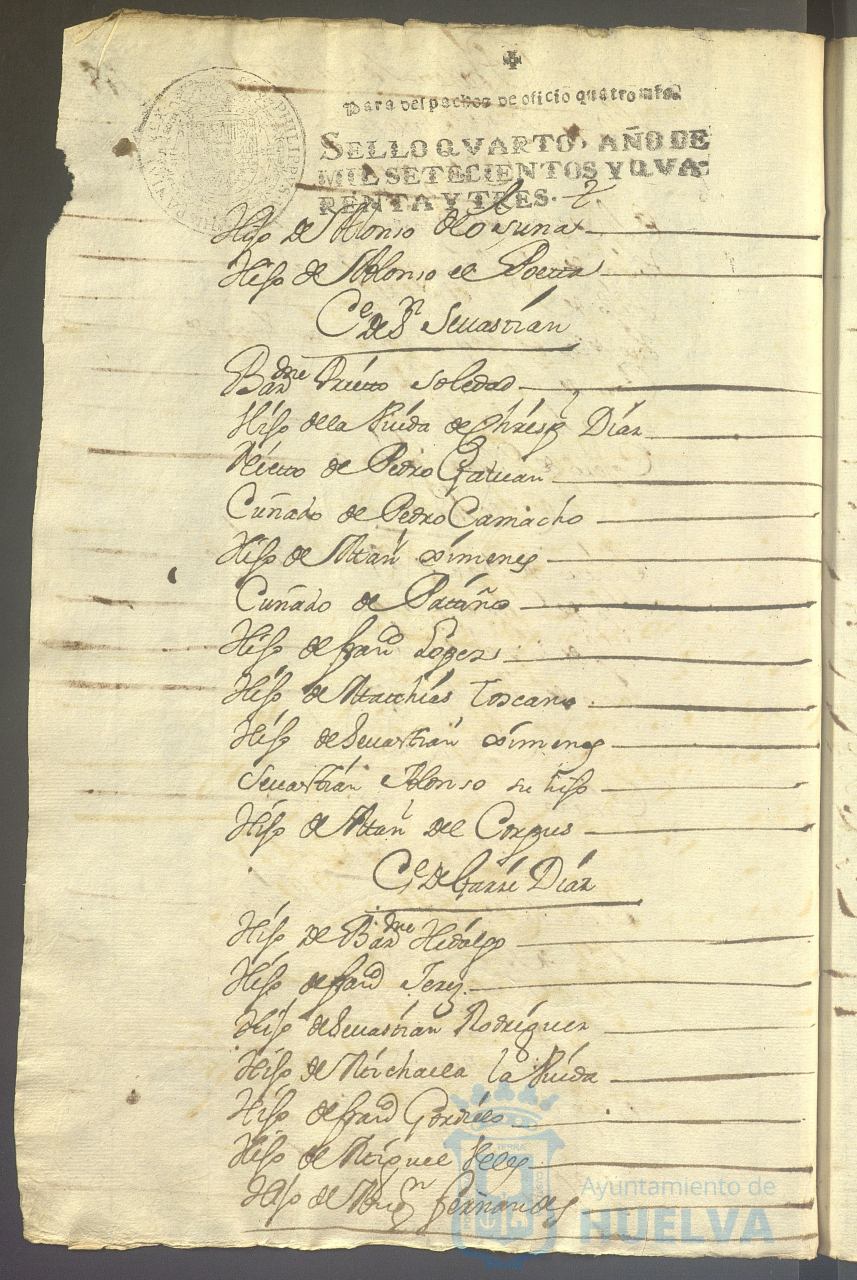 Para despachos de oficio quatro mrs.
SELLO QVARTO, AÑO DE
MIL SETECIENTOS Y QVA-
RENTA Y TRES.
2.
Hijo de Alonso de Osuna
Hijo de Alonso el Poeta
Ce. de Sn. Sevastian
Barme Prieto Soledad
Hijo de la Viuda de Chrisp Dias
Nieto de Pedro Galvan
Cuñado de Pedro Camacho
Hijo de Man ximenes
Cuñado de Patiño
Hijo de franco Lopez
Hijo de Mathias Toscano
Hijo de Sevastian ximenes
Sevastian Alonso su hijo
Hijo de Man del Corpus
Ce. de Garzi Dias
Hijo de Barme Hidalgo
Hijo de franco Jerez
Hijo de Sevastian Rodriguez
Hijo de Michaela la Viuda
Hijo de franco Gordillo
Hijo de Miguel Velez
Hijo de fernandes
Ayuntamiento de
HUELVA